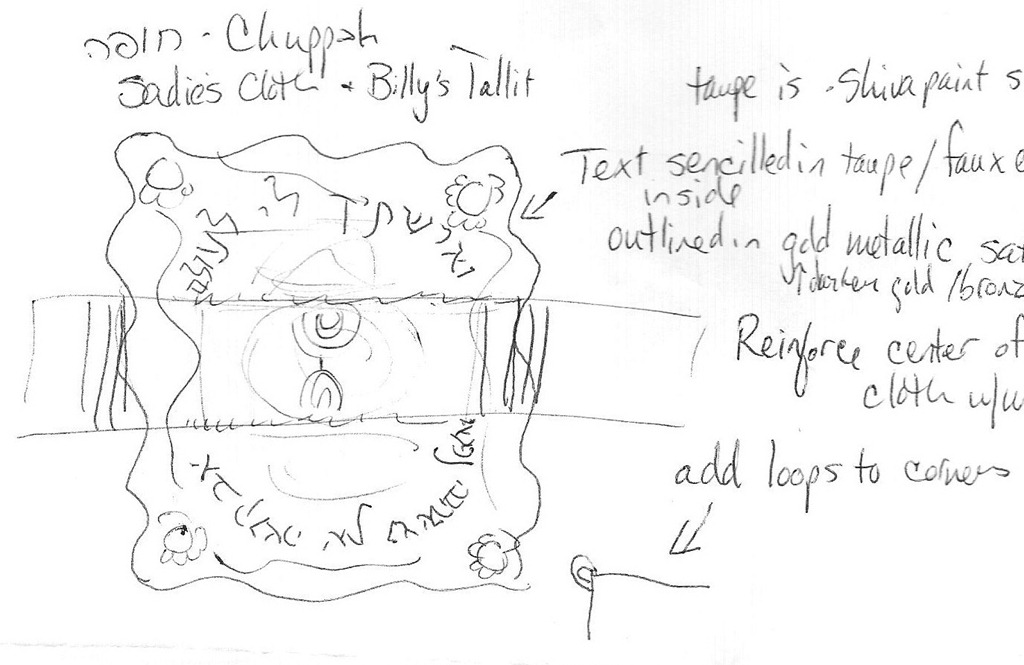 חופה - Chuppah
Sadie's Cloth + Billy's Tallit
taupe is - Shiva paint s
Text sencilled in taupe/faux
inside
outlined in gold metallic sat
darker gold/bronz
Reinforce center of
cloth
add loops to corners
לי לעולם